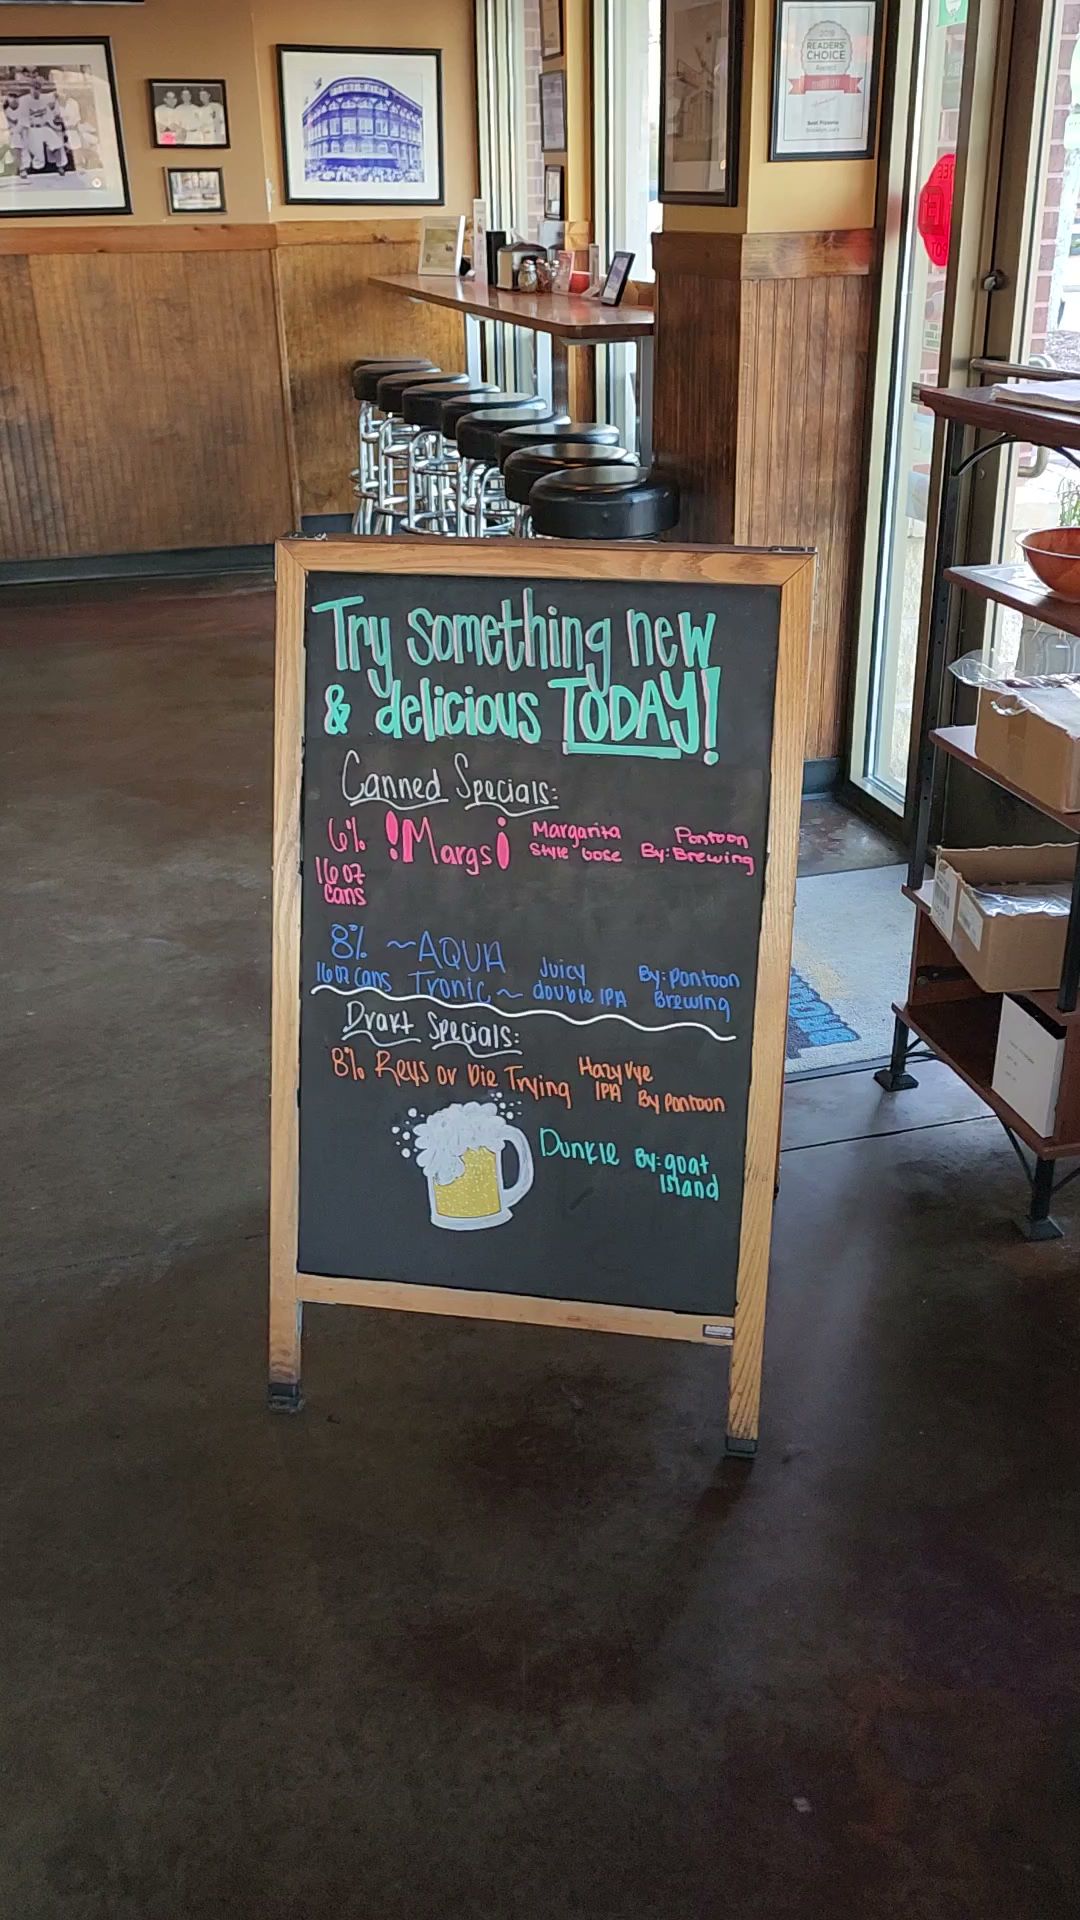 EBBETS FIELD
2019
READERS'
CHOICE
Award
Best Pizzeria
Try something new
& delicious TODAY!
Canned Specials:
6% !Margs¡ Margarita Style Gose By: Pontoon Brewing
16 oz cans
8% ~AQUA Tronic~ Juicy double IPA By: Pontoon Brewing
16 oz cans
Draft Specials:
8% Reys or Die Trying Hazy Rye IPA By Pontoon
Dunkle By: goat Island